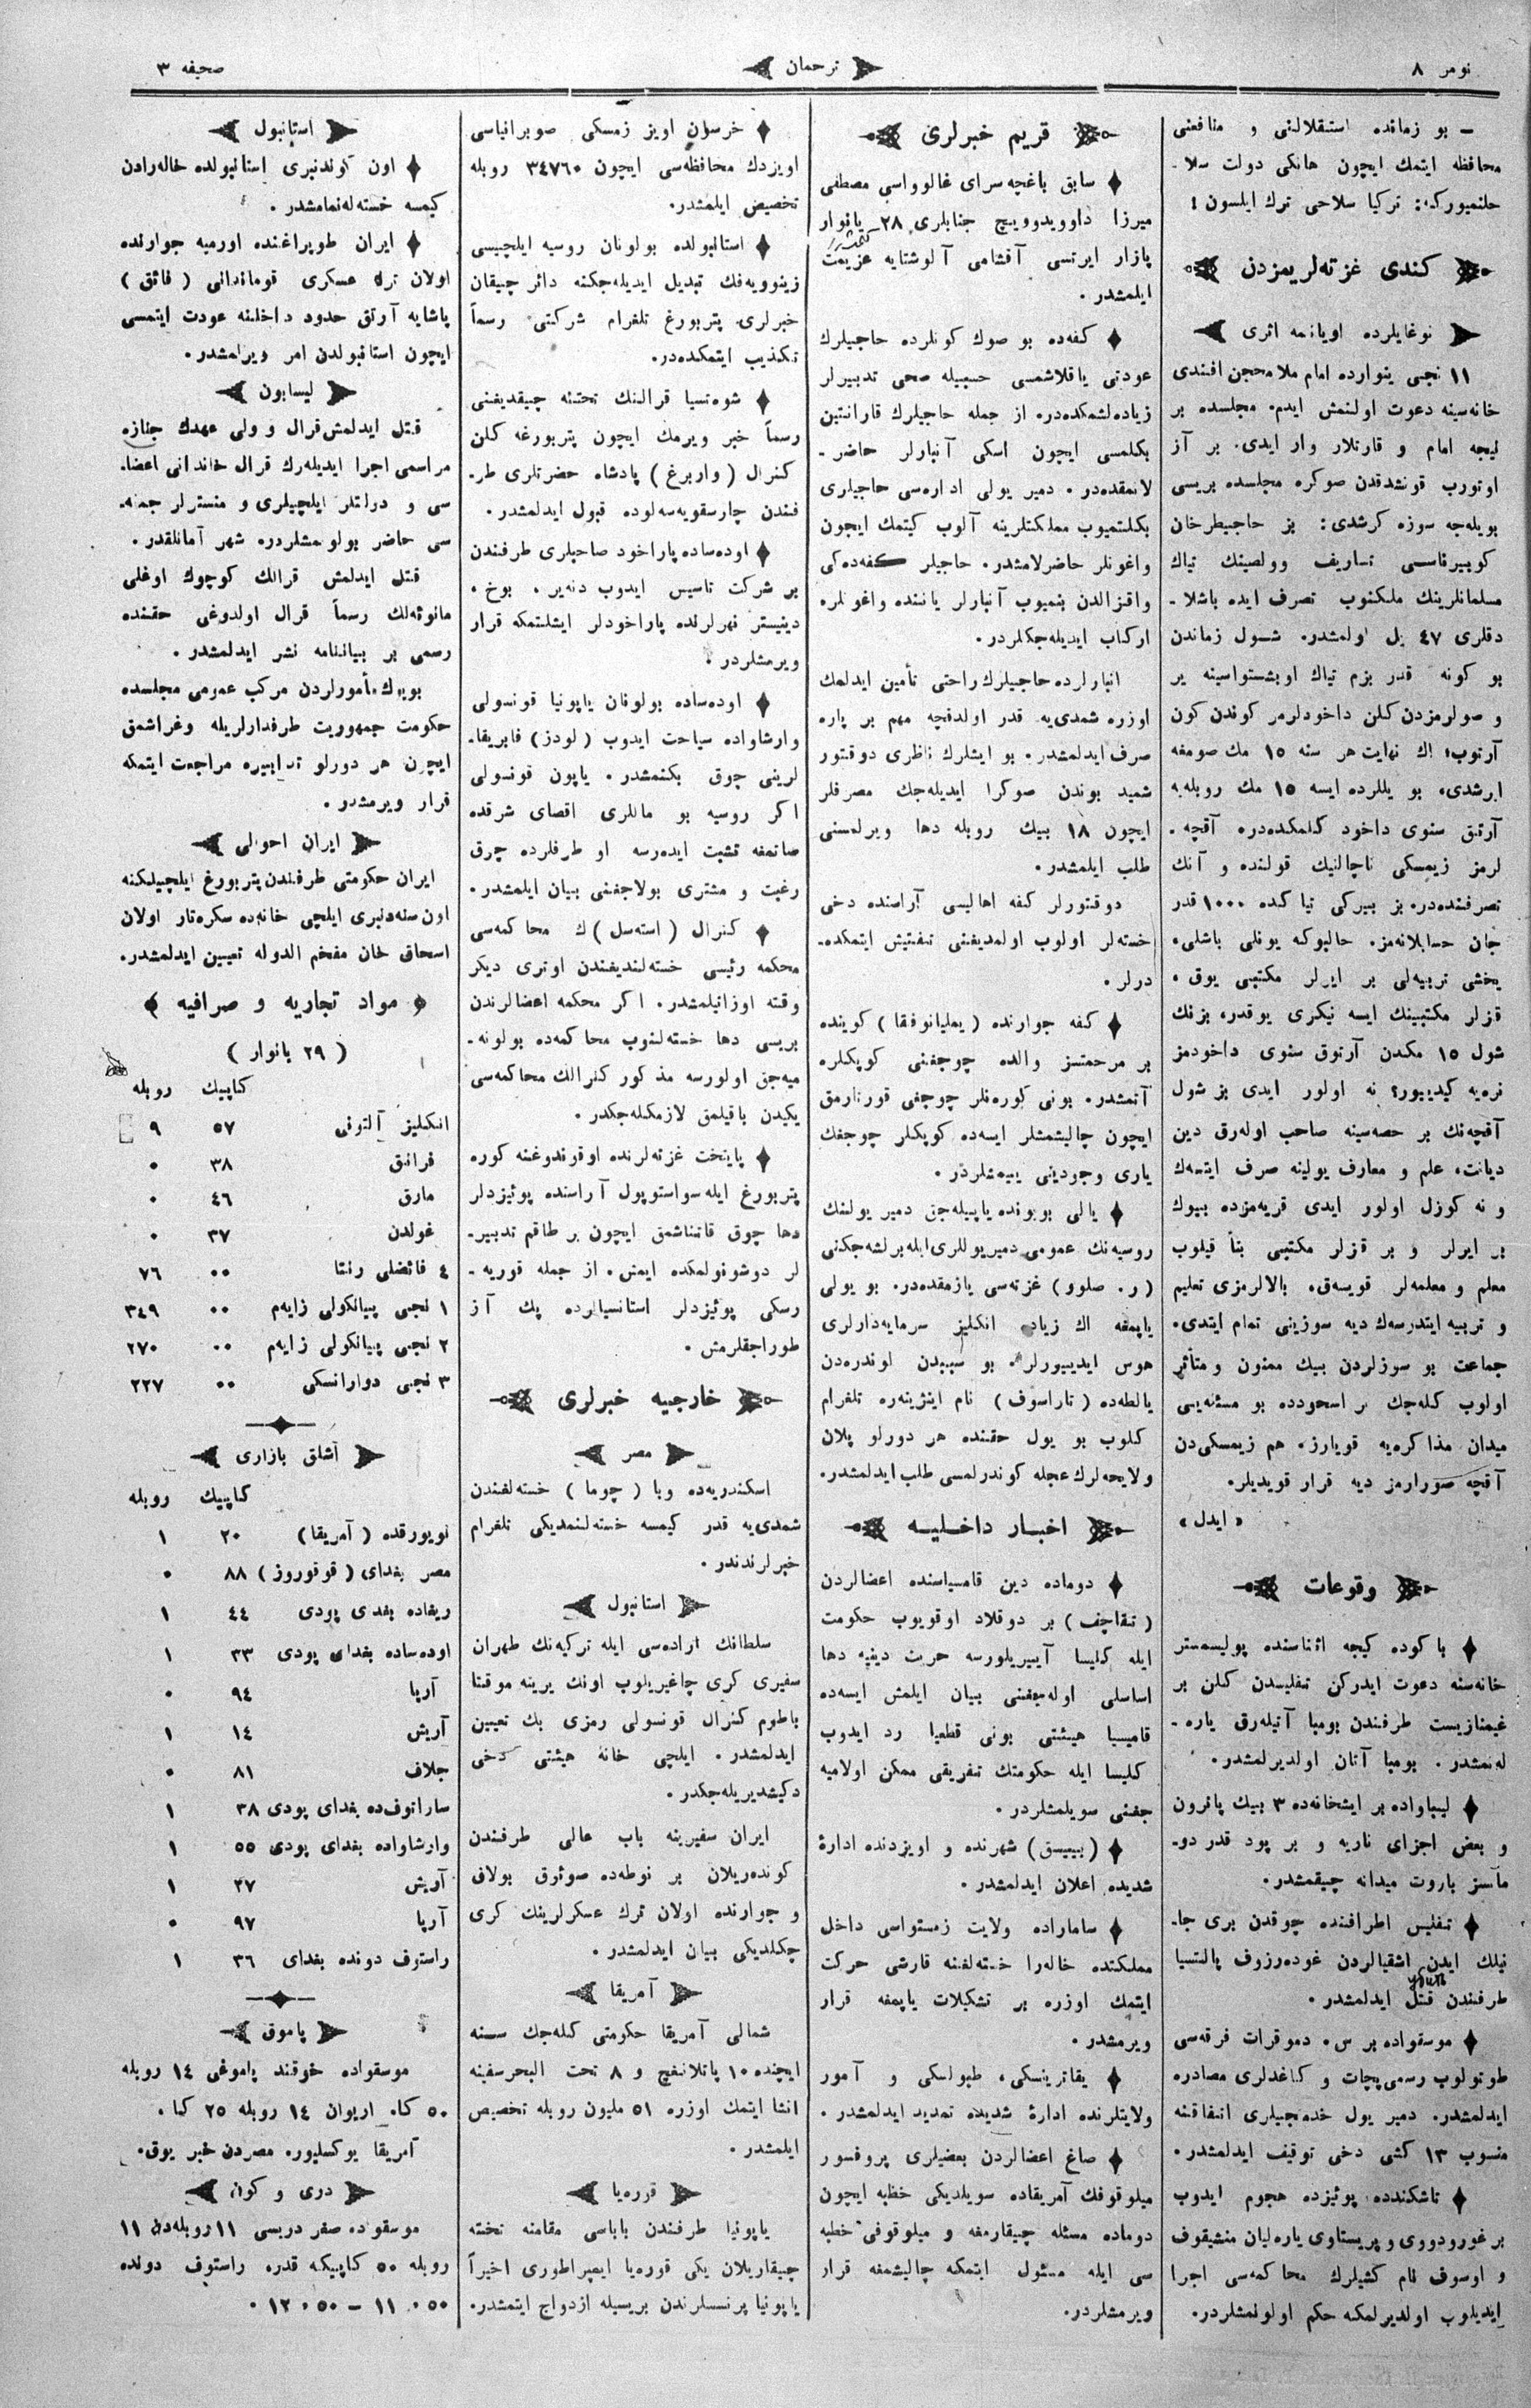 نومر ٨
ترجمان
صحیفه ٣
— بو زمانده استقلالنی و منافعنی
محافظه ایتمك ایچون هانكی دولت سلا-
حلنمیوركه: تركیا سلاحی ترك ایلسون!
كندی غزته‌لریمزدن
نوغایلرده اویانمه اثری
١١ نجی ینوارده امام ملا محجن افندی
خانه‌سینه دعوت اولنمش ایدم. مجلسده بر
نیجه امام و قارتلار وار ایدی. بر آز
اوتورب قونشدقدن صوكره مجلسده بریسی
بویله‌جه سوزه كرشدی: بز حاجیطرخان
كوبیرناسی تساریف وولصینك تیاك
مسلمانلرینك ملكنوب تصرف ایده باشلا-
دقلری ٤٧ یل اولمشدر. شول زماندن
بو كونه قدر بزم تیاك اوبشستواسینه یر
و صولرمزدن كلن داخودلرمز كوندن كون
آرتوب، اك نهایت هر سنه ١٥ مك صومغه
ایرشدی، بو یللرده ایسه ١٥ مك روبله‌به
آرتق سنوی داخود كلمكده‌در. آقچه-
لرمز زیمسكی ناچالنیك قولنده و آنك
تصرفنده‌در. بز بیركی تیاكده ١٠٠٠ قدر
جان حسابلانه‌مز. حالبوكه یونلی باشلی،
یخشی تربیه‌لی بر ایرلر مكتبی یوق.
قزلر مكتبینك ایسه نیكری یوقدر، بزنك
شول ١٥ مكدن آرتوق سنوی داخودمز
نره‌یه كیدییور؟ نه اولور ایدی بز شول
آقچه‌نك بر حصه‌سینه صاحب اوله‌رق دین
دیانت، علم و معارف یولینه صرف ایتسه‌ك
و نه كوزل اولور ایدی قریه‌مزده بیوك
بر ایرلر و بر قزلر مكتبی بنأ قیلوب
معلم و معلمه‌لر قویسه‌ق. بالالرمزی تعلیم
و تربیه ایتدرسه‌ك دیه سوزینی تمام ایتدی.
جماعت بو سوزلردن بیك ممنون و متأثر
اولوب كله‌جك بر اسخودده بو مسئله‌یی
میدان مذاكره‌یه قویارز. هم زیمسكی‌دن
آقچه صورارمز دیه قرار قویدیلر.
«ایدل»
وقوعات
باكوده كیجه اثناسنده پولیسمستر
خانه‌سنه دعوت ایدركن تفلیسدن كلن بر
غیمنازیست طرفندن بومبا آتیله‌رق یاره-
له‌نمشدر. بومبا آتان اولدیرلمشدر.
لیباواده بر ایشخانه‌ده ٣ بیك پاترون
و بعض اجزای ناریه و بر پود قدر دو-
مأنسز باروت میدانه چیقمشدر.
تفلیس اطرافنده چوقدن بری جا-
نیلك ایدن اشقیالردن غوده‌رزوف پالتسیا
طرفندن قتل ایدلمشدر.
موسقواده بر س. دموقرات فرقه‌سی
طوتولوب رسمی پچات و كاغدلری مصادره
ایدلمشدر. دمیر یول خدمجیلری اتفاقنه
منسوب ١٣ كشی دخی توقیف ایدلمشدر.
تاشكندده پوئیزده هجوم ایدوب
بر غورودووی و پریستاوی یاره‌لیان منشیقوف
و اوسوف نام كشیلرك محاكمه‌سی اجرا
ایدیلوب اولدیرلمكه حكم اولونمشلردر.
قریم خبرلری
سابق باغچه‌سرای غالوواسی مصطفی
میرزا داوویدوویچ جنابلری ٢٨ یانوار
پازار ایرتسی آقشامی آلوشتایه عزیمت
ایلمشدر.
كفه‌ده بو صوك كونلرده حاجیلرك
عودتی یاقلاشمسی حسبیله صحی تدبیرلر
زیاده‌لشمكده‌در. از جمله حاجیلرك قارانتین
بكلمسی ایچون اسكی آنبارلر حاضر-
لانمقده‌در. دمیر یولی اداره‌سی حاجیلری
بكلتمیوب مملكتلرینه آلوب كیتمك ایچون
واغونلر حاضرلامشدر. حاجیلر كفه‌ده‌كی
واقزالدن بنمیوب آنبارلر یاننده واغونلره
اركاب ایدیله‌جكلردر.
انبارلرده حاجیلرك راحتی تأمین ایدلمك
اوزره شمدی‌یه قدر اولدقچه مهم بر پاره
صرف ایدلمشدر. بو ایشلرك ناظری دوقتور
شمید بوندن صوكرا ایدیله‌جك مصرفلر
ایچون ١٨ بیك روبله دها ویرلمسنی
طلب ایلمشدر.
دوقتورلر كفه اهالیسی آراسنده دخی
خسته‌لر اولوب اولمدیغنی تفتیش ایتمكده-
درلر.
كفه جوارنده (یملیانوفقا) كوینده
بر مرحمتسز والده چوجغنی كوپكلره
آتمشدر. بونی كوره‌نلر چوجغی قورتارمق
ایچون چالیشمشلر ایسه‌ده كوپكلر چوجغك
یاری وجودینی ییمشلردر.
یالی بوبونده یاپیله‌جق دمیر یولنك
روسیه‌نك عمومی دمیر یوللری ایله برلشه‌جكنی
(ر. صلوو) غزته‌سی یازمقده‌در. بو یولی
یاپمغه اك زیاده انكلیز سرمایه‌دارلری
هوس ایدییورلر. بو سببدن لوندره‌دن
یالطه‌ده (تاراسوف) نام اینژینه‌ره تلغرام
كلوب بو یول حقنده هر دورلو پلان
ولایحه‌لرك عجله كوندرلمسی طلب ایدلمشدر.
اخبار داخلیه
دوماده دین قامسیاسنده اعضالردن
(تقاچف) بر دوقلاد اوقویوب حكومت
ایله كلیسا آییریلورسه حریت دینیه دها
اساسلی اوله‌جغنی بیان ایلمش ایسه‌ده
قامیسیا هیئتی بونی قطعیا رد ایدوب
كلیسا ایله حكومتك تفریقی ممكن اولامیه
جغنی سویلمشلردر.
(بییسق) شهرنده و اویزدنده ادارۀ
شدیده اعلان ایدلمشدر.
ساماراده ولایت زمستواسی داخل
مملكتده خاله‌را خسته‌لغنه قارشی حركت
ایتمك اوزره بر تشكیلات یاپمغه قرار
ویرمشدر.
یقاترینسكی، طبولسكی و آمور
ولایتلرنده ادارۀ شدیده تمدید ایدلمشدر.
صاغ اعضالردن بعضیلری پروفسور
میلوقوفك آمریقاده سویلدیكی خطبه ایچون
دوماده مسئله چیقارمغه و میلوقوفی خطبه
سی ایله مسئول ایتمكه چالیشمغه قرار
ویرمشلردر.
خرسون اویز زمسكی صوبرانیاسی
اویزدك محافظه‌سی ایچون ٣٤٧٦٠ روبله
تخصیص ایلمشدر.
استانبولده بولونان روسیه ایلچیسی
زینوویه‌فك تبدیل ایدیله‌جكنه دائر چیقان
خبرلری پتربورغ تلغرام شركتی رسماً
تكذیب ایتمكده‌در.
شوه‌تسیا قرالنك تحتنه چیقدیغنی
رسماً خبر ویرمك ایچون پتربورغه كلن
كنرال (واربرغ) پادشاه حضرتلری طر-
فندن چارسقویه‌سه‌لوده قبول ایدلمشدر.
اوده‌ساده پاراخود صاحبلری طرفندن
بر شركت تاسیس ایدوب دنه‌پر، بوخ،
دینیستر نهرلرنده پاراخودلر ایشلتمكه قرار
ویرمشلردر.
اوده‌ساده بولونان یاپونیا قونسولی
وارشاواده سیاحت ایدوب (لودز) فابریقا-
لرینی چوق بكنمشدر. یاپون قونسولی
اكر روسیه بو ماللری اقصای شرقده
صاتمغه تشبث ایده‌رسه او طرفلرده چوق
رغبت و مشتری بولاجغنی بیان ایلمشدر.
كنرال (استه‌سل)ك محاكمه‌سی
محكمه رئیسی خسته‌لندیغندن اوتری دیكر
وقته اوزاتیلمشدر. اكر محكمه اعضالرندن
بریسی دها خسته‌لنوب محاكمه‌ده بولونه-
میه‌جق اولورسه مذكور كنرالك محاكمه‌سی
یكیدن باقیلمق لازمكله‌جكدر.
پایتخت غزته‌لرنده اوقوندوغنه كوره
پتربورغ ایله سواستوپول آراسنده پوئیزدلر
دها چوق قاتناشمق ایچون بر طاقم تدبیر-
لر دوشونولمكده ایمش. از جمله قوریه-
رسكی پوئیزدلر استانسیالرده پك آز
طوراجقلرمش.
خارجیه خبرلری
مصر
اسكندریه‌ده وبا (چوما) خسته‌لغندن
شمدی‌یه قدر كیمسه خسته‌لنمدیكی تلغرام
خبرلرندندر.
استانبول
سلطانك اراده‌سی ایله تركیه‌نك طهران
سفیری كری چاغیریلوب اونك یرینه موقتا
باطوم كنرال قونسولی رمزی بك تعیین
ایدلمشدر. ایلچی خانه هیئتی دخی
دكیشدیریله‌جكدر.
ایران سفیرینه باب عالی طرفندن
كونده‌ریلان بر نوطه‌ده صوئوق بولاق
و جوارنده اولان ترك عسكرلرینك كری
چكلدیكی بیان ایدلمشدر.
آمریقا
شمالی آمریقا حكومتی كله‌جك سنه
ایچنده ١٠ پاتلانغچ و ٨ تحت البحر سفینه
انشا ایتمك اوزره ٥١ ملیون روبله تخصیص
ایلمشدر.
قوره‌یا
یاپونیا طرفندن باباسی مقامنه تخته
چیقاریلان یكی قوره‌یا ایمپراطوری اخیراً
یاپونیا پرنسسلرندن بریسیله ازدواج ایتمشدر.
استانبول
اون كوندنبری استانبولده خاله‌رادن
كیمسه خسته‌له‌نمامشدر.
ایران طوپراغنده اورمیه جوارنده
اولان ترك عسكری قوماندانی (فائق)
پاشایه آرتق حدود داخلنه عودت ایتمسی
ایچون استانبولدن امر ویرلمشدر.
لیسابون
قتل ایدلمش قرال و ولی عهدك جنازه
مراسمی اجرا ایدیله‌رك قرال خاندانی اعضا-
سی و دولتلر ایلچیلری و منسترلر جمله-
سی حاضر بولونمشلردر. شهر آمانلقدر.
قتل ایدلمش قرالك كوچوك اوغلی
مانوئه‌لك رسماً قرال اولدوغی حقنده
رسمی بر بیاننامه نشر ایدلمشدر.
بویوك مأمورلردن مركب عمومی مجلسده
حكومت جمهوریت طرفدارلریله وغراشمق
ایچون هر دورلو تدابیره مراجعت ایتمكه
قرار ویرمشدر.
ایران احوالی
ایران حكومتی طرفندن پتربورغ ایلچیلكنه
اون سنه‌دنبری ایلچی خانه‌ده سكره‌تار اولان
اسحاق خان مفخم الدوله تعیین ایدلمشدر.
مواد تجاریه و صرافیه
(٢٩ یانوار)
كاپیك روبله
انكلیز آلتونی ٥٧ ٩
فرانق ٣٨ ٠
مارق ٤٦ ٠
غولدن ٣٧ ٠
٤ فائضلی رنتا ٠٠ ٧٦
١ نجی پیانكولی زایه‌م ٠٠ ٣٤٩
٢ نجی پیانكولی زایه‌م ٠٠ ٢٧٠
٣ نجی دوارانسكی ٠٠ ٢٢٧
آشلق بازاری
كاپیك روبله
نویورقده (آمریقا) ٢٠ ١
مصر بغدای (قوقوروز) ٨٨ ٠
ریغاده بغدای پودی ٤٤ ١
اوده‌ساده بغدای پودی ٣٣ ١
آرپا ٩٤ ٠
آریش ١٤ ١
جلاف ٨١ ٠
ساراتوف‌ده بغدای پودی ٣٨ ١
وارشاواده بغدای پودی ٥٥ ١
آریش ٢٧ ١
آرپا ٩٧ ٠
راستوف دونده بغدای ٣٦ ١
پاموق
موسقواده خوقند پاموغی ١٤ روبله
٥٠ كا. اریوان ١٤ روبله ٢٥ كا.
آمریقا یوكسلیور. مصردن خبر یوق.
دری و كون
موسقوده صغر دریسی ١١ روبله‌دن ١١
روبله ٥٠ كاپیكه قدر. راستوف دونده
١١،٥٠ — ١٢،٥٠.